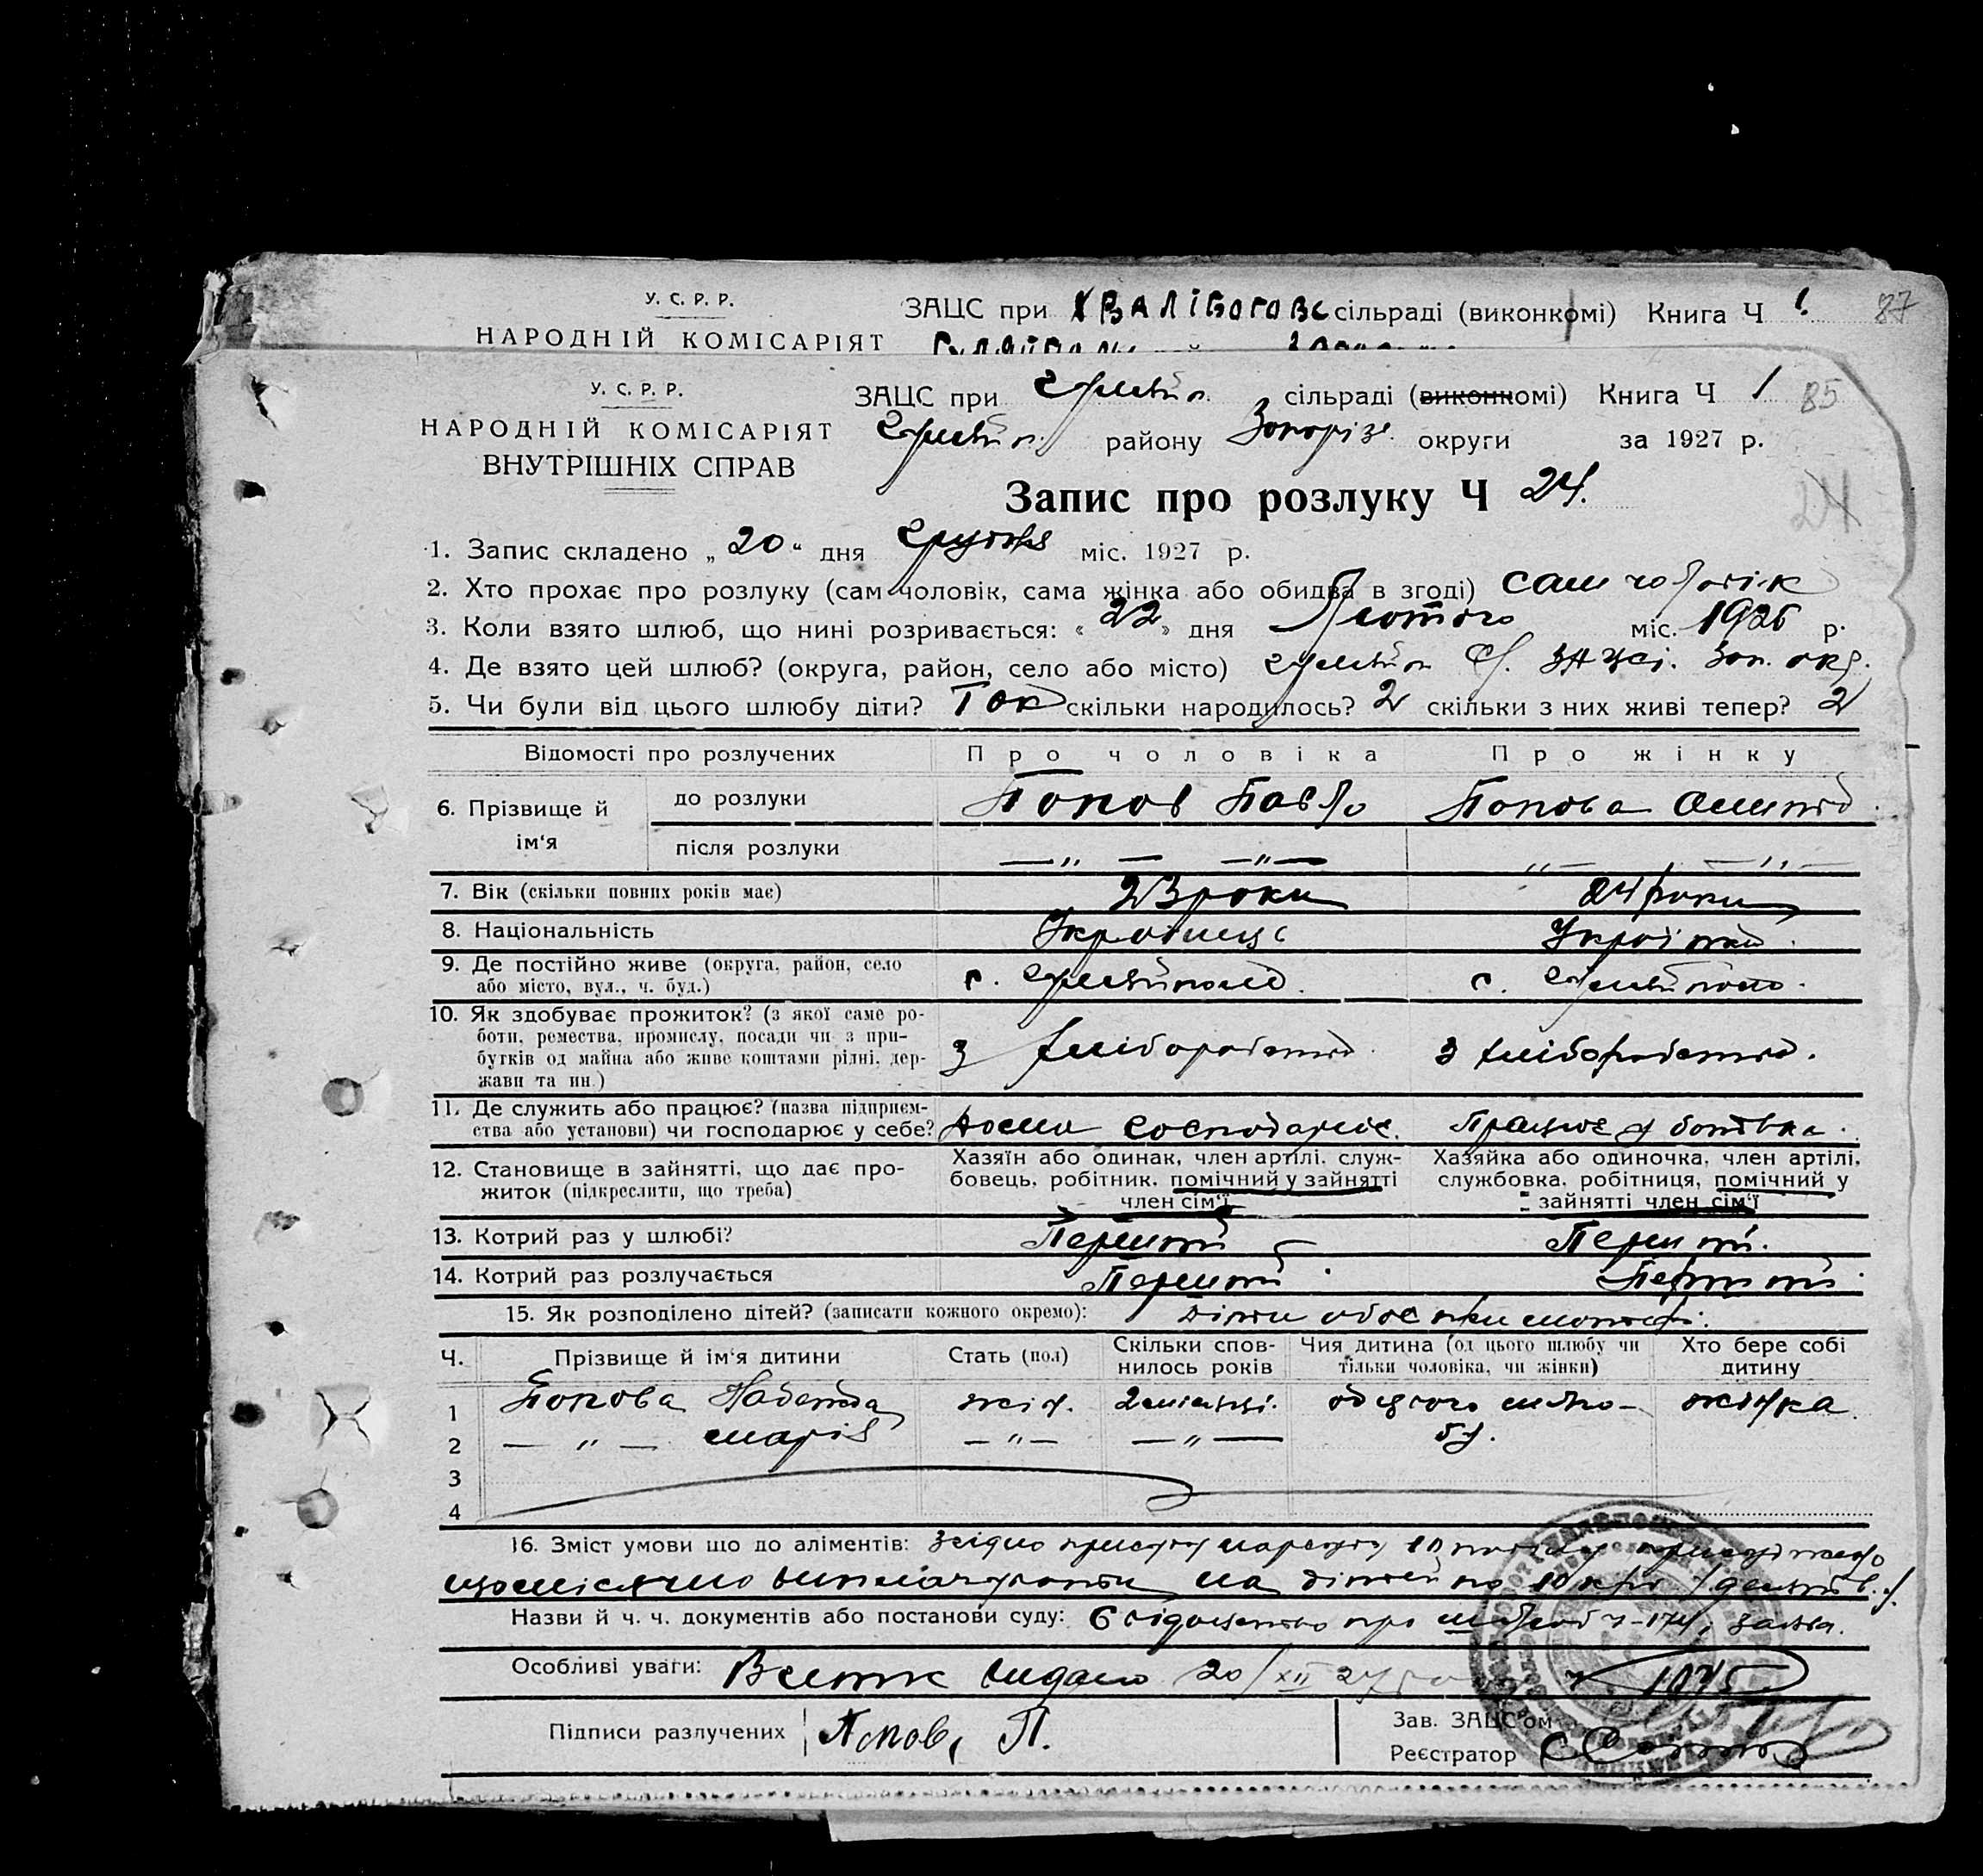 У. С. Р. Р.
ЗАЦС при ХВАЛІБОГОВС сільраді (виконкомі) Книга Ч 1 87
НАРОДНІЙ КОМІСАРІЯТ
У. С. Р. Р.
ЗАЦС при сільраді (виконкомі) Книга Ч 1 85
НАРОДНІЙ КОМІСАРІЯТ
району Запоріз. округи за 1927 р.
ВНУТРІШНІХ СПРАВ
Запис про розлуку Ч 24.
24
1. Запис складено „ 20 “ дня грудня міс. 1927 р.
2. Хто прохає про розлуку (сам чоловік, сама жінка або обидва в згоді) сам чоловік
3. Коли взято шлюб, що нині розривається: « 22 » дня Лютого міс. 1926 р.
4. Де взято цей шлюб? (округа, район, село або місто) Зап. окр.
5. Чи були від цього шлюбу діти? Так скільки народилось? 2 скільки з них живі тепер? 2
Відомості про розлучених Про чоловіка Про жінку
6. Прізвище й ім‘я до розлуки Попов Павло Попова
після розлуки — „ — — „ — „ — — „ —
7. Вік (скільки повних років має) 23 роки 24 роки
8. Національність Українець Українка.
9. Де постійно живе (округа, район, село
або місто, вул., ч. буд.) с. с.
10. Як здобуває прожиток? (з якої саме ро-
боти, ремества, промислу, посади чи з при-
бутків од майна або живе коштами рідні, дер-
жави та ин.) З хліборобства. З хліборобства.
11. Де служить або працює? (назва підприєм-
ства або установи) чи господарює у себе? господарює. Працює у батька.
12. Становище в зайнятті, що дає про-
житок (підкреслити, що треба)
Хазяїн або одинак, член артілі, служ-
бовець, робітник, помічний у зайнятті
член сім‘ї
Хазяйка або одиночка, член артілі,
службовка, робітниця, помічний у
зайнятті член сім‘ї
13. Котрий раз у шлюбі? Перший Перший.
14. Котрий раз розлучається Перший. Перший.
15. Як розподілено дітей? (записати кожного окремо): Діти обоє при матері.
Ч. Прізвище й ім‘я дитини Стать (пол) Скільки спов-
нилось років Чия дитина (од цього шлюбу чи
тільки чоловіка, чи жінки) Хто бере собі
дитину
1 Попова Надежда жін. 2 місяці. од цього шлю- жінка
2 — „ — Марія — „ — — „ — бу.
3
4
16. Зміст умови що до аліментів: Згідно присуду нарсуду
щомісячно виплачувати на дітей по 10 крб
Назви й ч. ч. документів або постанови суду: Свідоцтво про шлюб заява.
Особливі уваги: Витяг видано 20/XII 27 1075
Підписи разлучених Попов, П.
Зав. ЗАЦС‘ом
Реєстратор